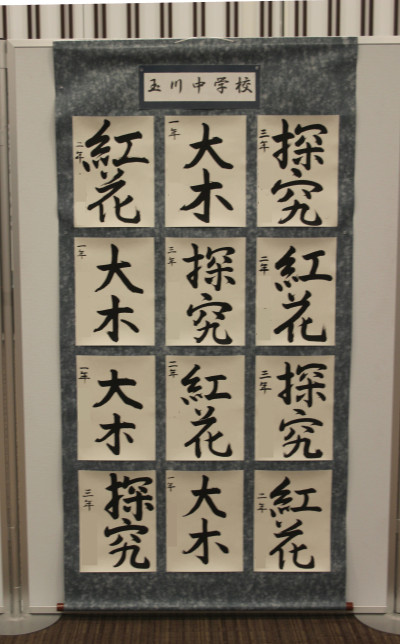 玉川中学校
三年 探究
一年 大木
二年 紅花
二年 紅花
三年 探究
一年 大木
三年 探究
二年 紅花
一年 大木
二年 紅花
一年 大木
三年 探究